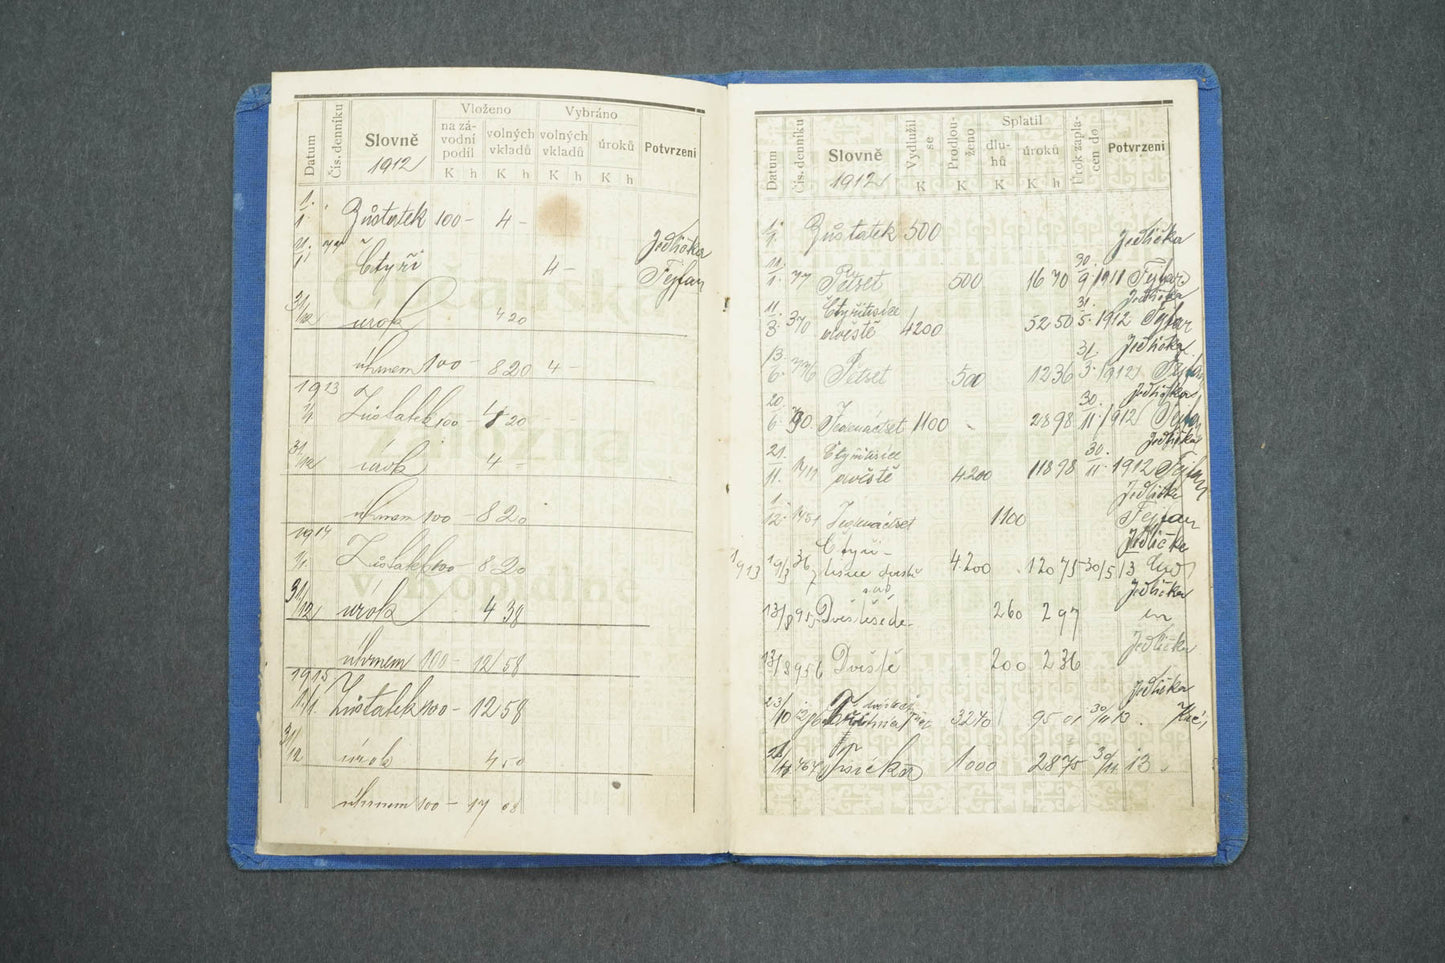 Datum Čís. denníku Slovně Vloženo Vybráno Potvrzení
na zá-vodní podíl volných vkladů volných vkladů úroků
1912 K h K h K h K h
1. 1. Zůstatek 100 – 4 –
Jedlička
11. 1. 77 Čtyři 4 – Fejfar
31/12 úrok 4 20
úhrnem 100 – 8 20 4 –
1913
1/1. Zůstatek 100 – 4 20
31/12 úrok 4 –
úhrnem 100 – 8 20
1914
1/1. Zůstatek 100 – 8 20
31/12 úrok 4 38
úhrnem 100 – 12 58
1915
1/1. Zůstatek 100 – 12 58
31/12 úrok 4 50
úhrnem 100 – 17 08
Datum Čís. denníku Slovně Vydlužil se Prodlou-ženo Splatil Úrok zapla-cen do Potvrzení
dlu-hů úroků
1912 K K K K h
1. 1. Zůstatek 500 Jedlička
11. 1. 77 Pětset 500 16 70 30. 9. 1911 Fejfar
Jedlička
11. 3. 370 Čtyřitisíce dvěstě 4200 52 50 31. 5. 1912 Fejfar
Jedlička
13. 6. 776 Pětset 500 12 36 31. 3. 1912 Fejfar
Jedlička
20. 6. Jedenáctset 1100 28 98 30. 11. 1912
Jedlička
21. 11. Čtyřitisíce dvěstě 4200 118 98 30. 11. 1912 Fejfar
Jedlička
1. 12. 1451 Jedenáctset 1100 Fejfar
Jedlička
1913 19/3 36 Čtyři-tisíce dvěstě 4200 120 75 30/5 13
Jedlička
13/8 955 Dvěstěšede- sát 260 2 97
Jedlička
13/8 956 Dvěstě 200 2 36
Jedlička
23/10 3240 95 01 30/11 13.
Tisíc K 1000 28 75 30/11 13.